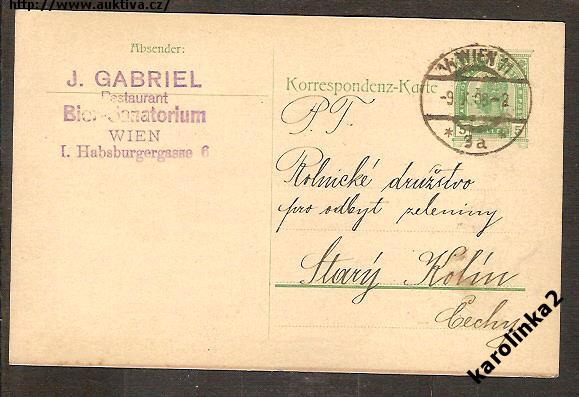 http://www.auktiva.cz/
Absender:
J. GABRIEL
Restaurant
Bier-Sanatorium
WIEN
I. Habsburgergasse 6
Korrespondenz-Karte
WIEN
9a
P. T.
Rolnické družstvo
pro odbyt zeleniny
Starý Kolín
Čechy
karolinka2